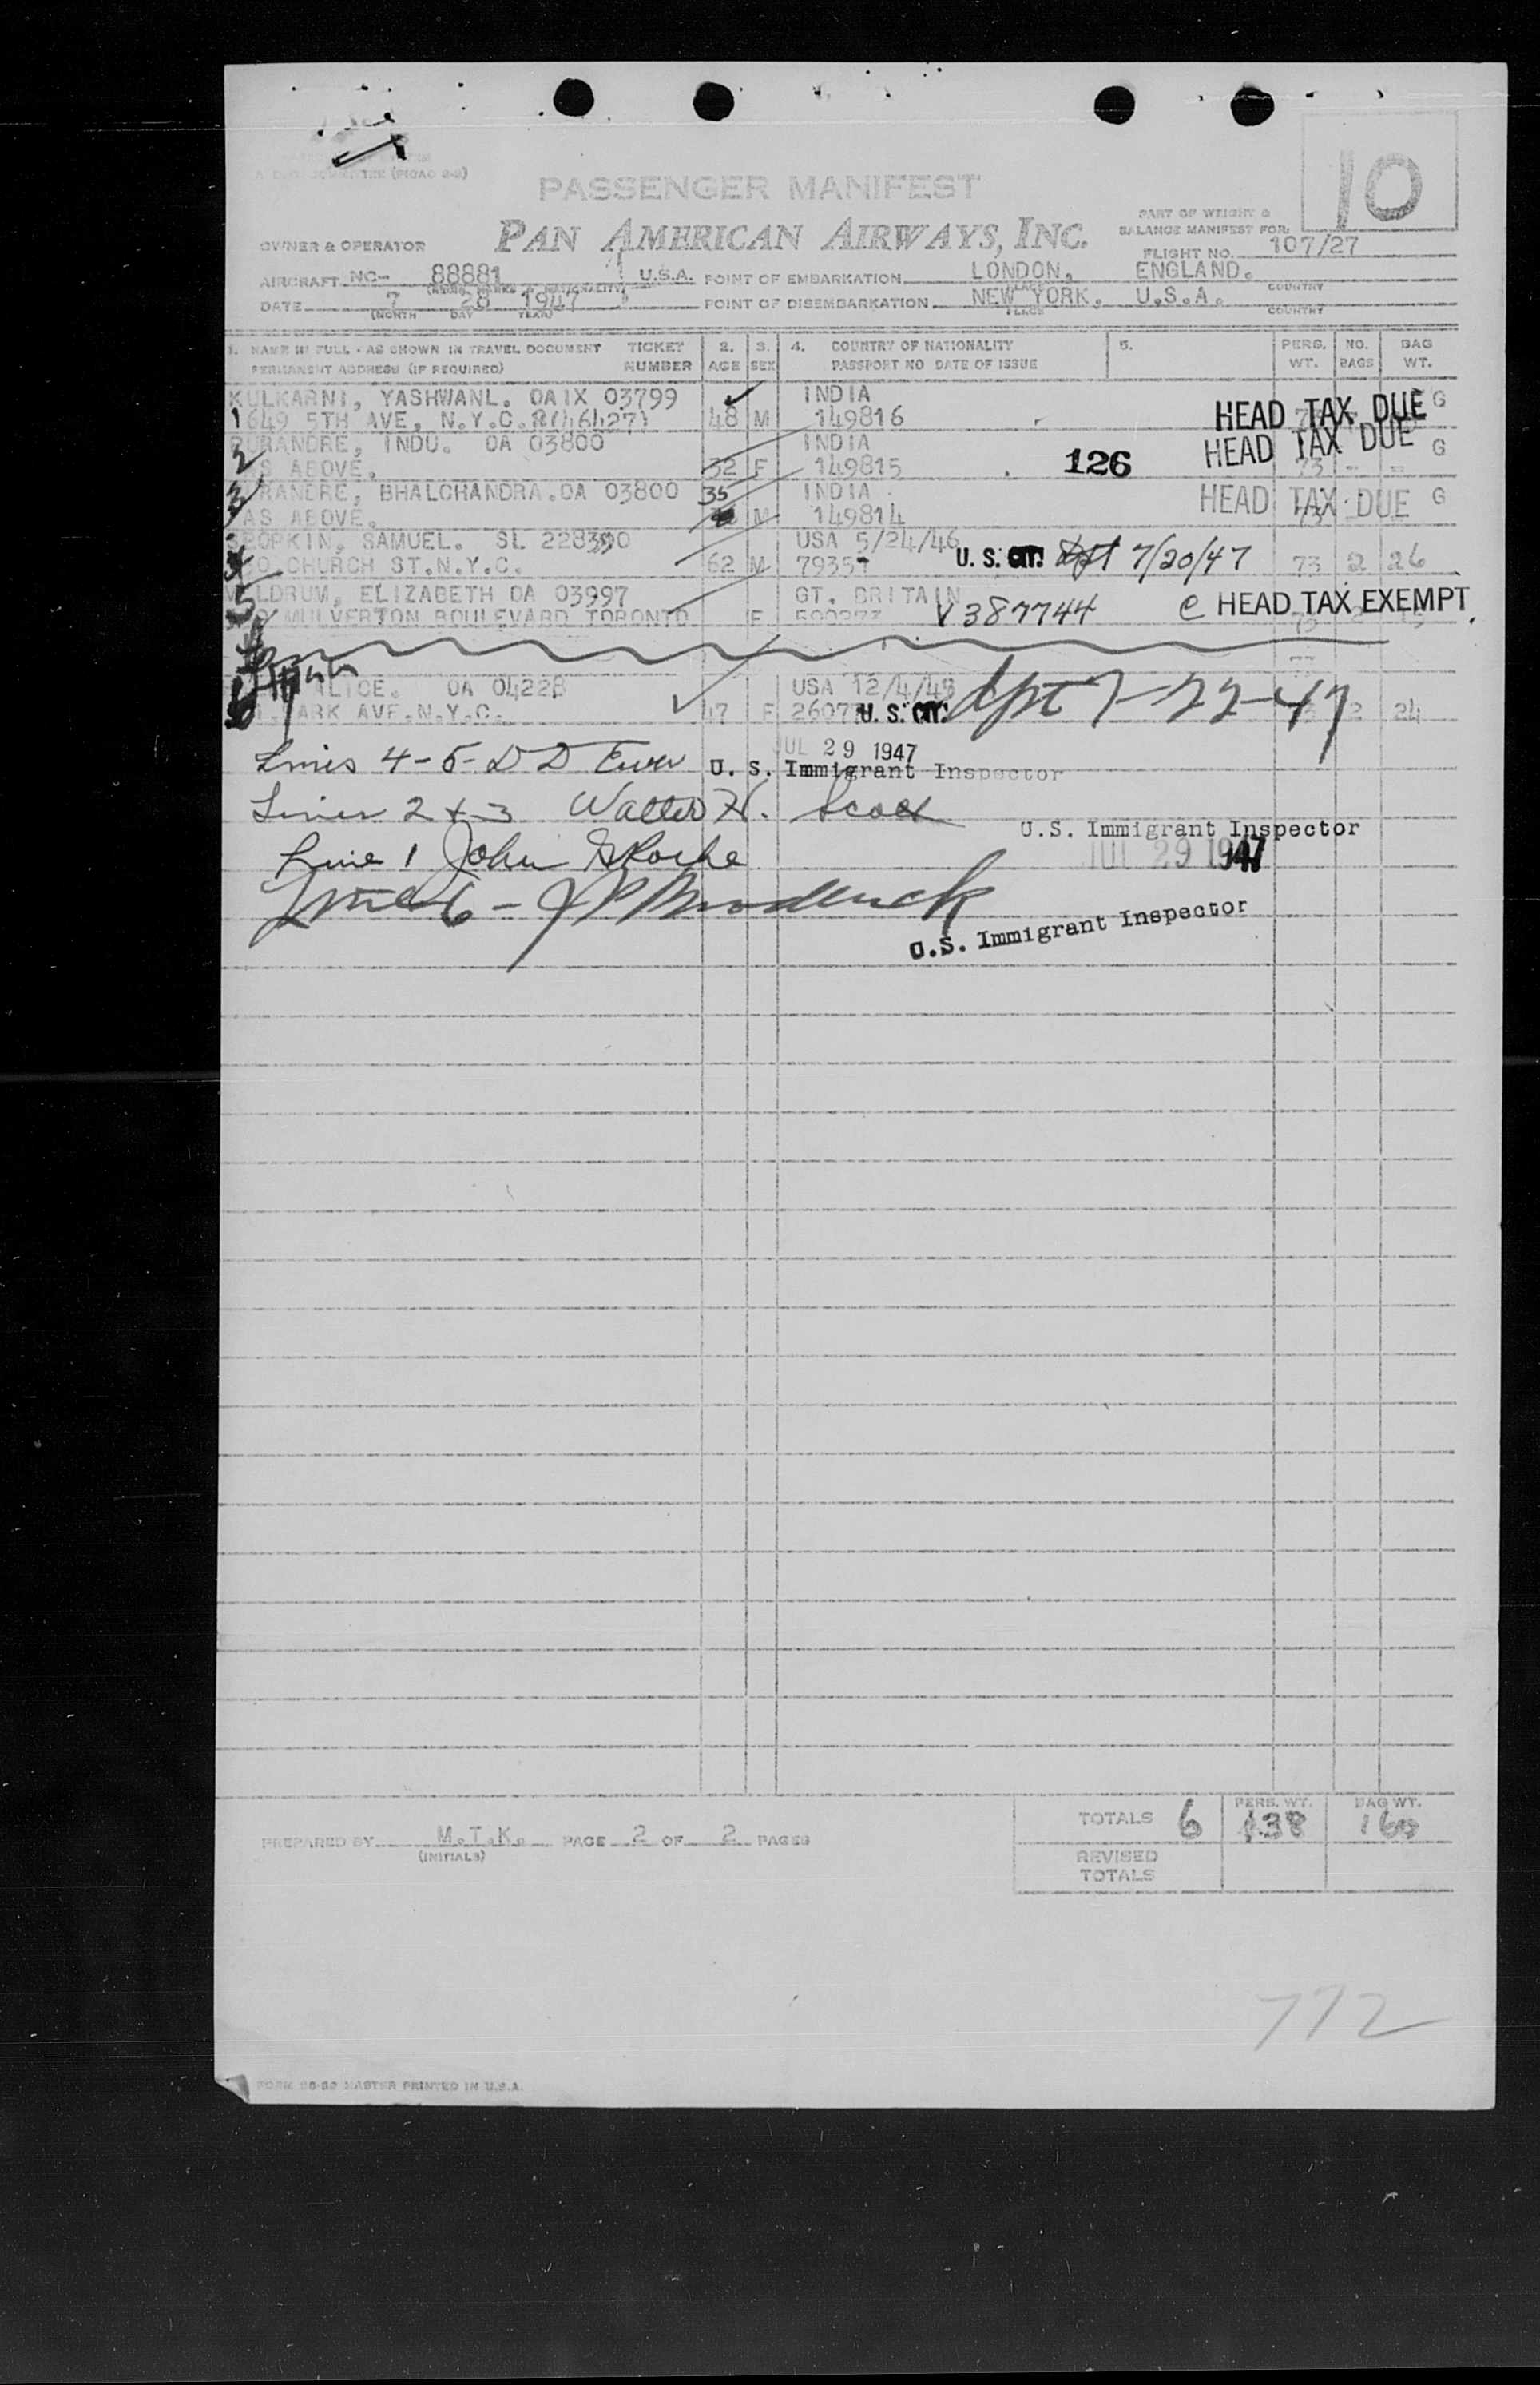 COMMITTEE (PICAO 2-2)
PASSENGER MANIFEST
10
PART OF WEIGHT &
BALANCE MANIFEST FOR:
OWNER & OPERATOR PAN AMERICAN AIRWAYS, INC.
FLIGHT NO. 107/27
AIRCRAFT NC- 88881 U.S.A. POINT OF EMBARKATION LONDON, ENGLAND.
PLACE COUNTRY
DATE 7 28 1947 POINT OF DISEMBARKATION NEW YORK. U.S.A.
(MONTH DAY YEAR) PLACE COUNTRY
1. NAME IN FULL - AS SHOWN IN TRAVEL DOCUMENT TICKET 2. 3. 4. COUNTRY OF NATIONALITY 5. PERS. NO. BAG
PERMANENT ADDRESS (IF REQUIRED) NUMBER AGE SEX PASSPORT NO DATE OF ISSUE WT. BAGS WT.
KULKARNI, YASHWANL. OAIX 03799 INDIA G
1 649 5TH AVE. N.Y.C. 48 M 149816 HEAD TAX DUE
2 INDU. OA 03800 INDIA HEAD TAX DUE G
AS ABOVE. 32 F 149815 126 73 - -
3 BHALCHANDRA. OA 03800 35 INDIA HEAD TAX DUE G
AS ABOVE. M 149814 73
SAMUEL. SL USA 5/24/46
CHURCH ST. N.Y.C. 62 M 79357 U.S. CIT. dpt 7/20/47 73 2 26
5 ELIZABETH OA 03997 GT. BRITAIN
MULVERTON BOULEVARD TORONTO F V 387744 C HEAD TAX EXEMPT
6 ALICE. OA 04228 USA 12/4/45
PARK AVE. N.Y.C. 47 F U.S. CIT. dpt 7-22-47 2 24
JUL 29 1947
Lines 4-5- D D U.S. Immigrant Inspector
Lines 2 & 3 Walter H. Scott
U.S. Immigrant Inspector
Line 1 John JUL 29 1947
Line 6 - J P Broderick
U.S. Immigrant Inspector
PERS. WT. BAG WT.
TOTALS 6 438 160
PREPARED BY M.T.K. PAGE 2 OF 2 PAGES
(INITIALS)
REVISED
TOTALS
772
MASTER PRINTED IN U.S.A.